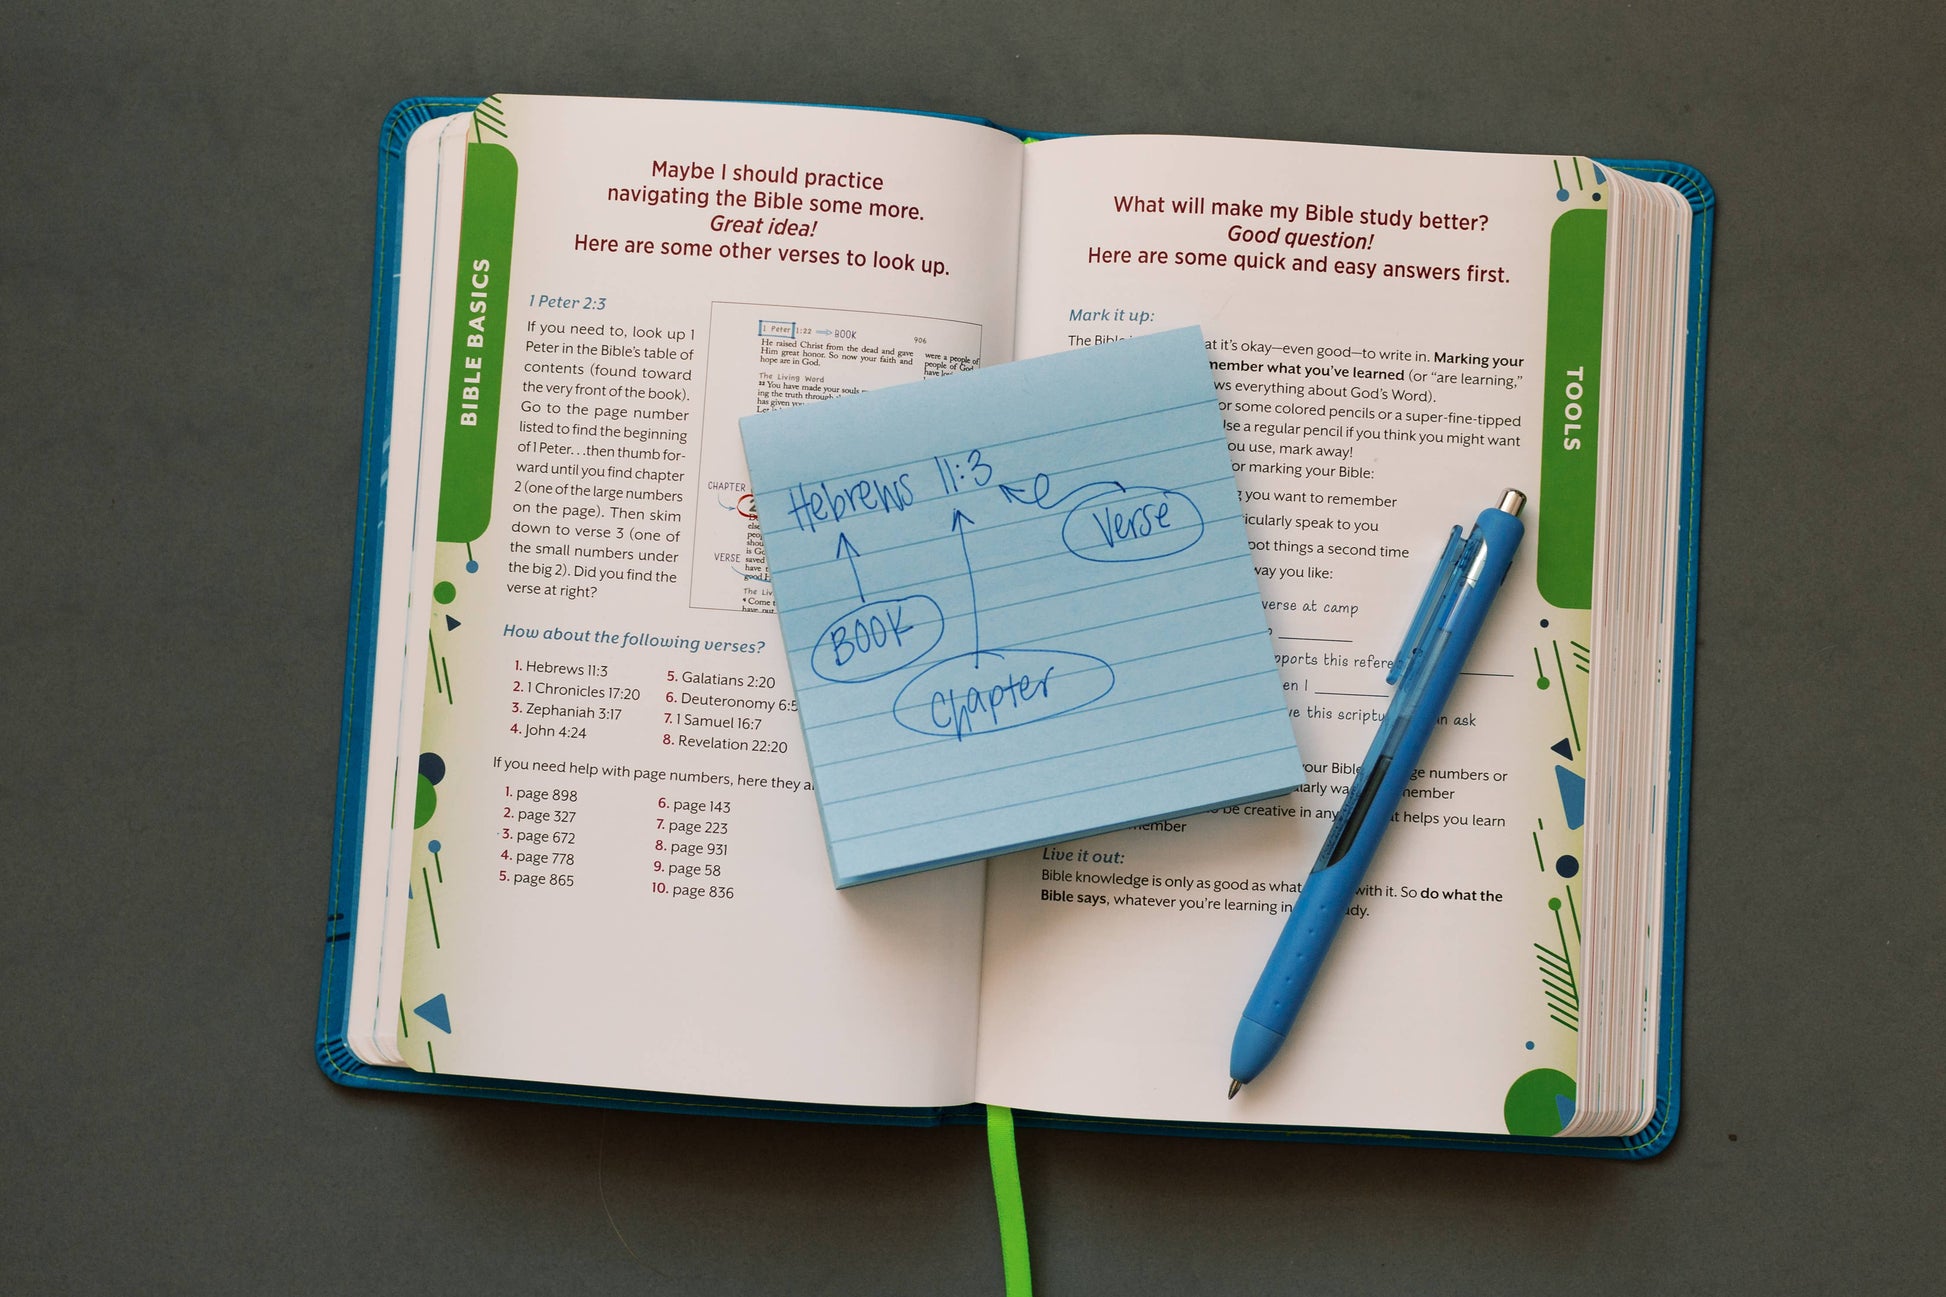 BIBLE BASICS
Maybe I should practice
navigating the Bible some more.
Great idea!
Here are some other verses to look up.
1 Peter 2:3
If you need to, look up 1
Peter in the Bible's table of
contents (found toward
the very front of the book).
Go to the page number
listed to find the beginning
of 1 Peter. . .then thumb for-
ward until you find chapter
2 (one of the large numbers
on the page). Then skim
down to verse 3 (one of
the small numbers under
the big 2). Did you find the
verse at right?
1 Peter 1:22 BOOK
906
He raised Christ from the dead and gave
Him great honor. So now your faith and
hope are in God.
The Living Word
22 You have made your souls
ing the truth through
has given
were a people of
people of God
CHAPTER
VERSE
How about the following verses?
1. Hebrews 11:3
2. 1 Chronicles 17:20
3. Zephaniah 3:17
4. John 4:24
5. Galatians 2:20
6. Deuteronomy 6:5
7. 1 Samuel 16:7
8. Revelation 22:20
If you need help with page numbers, here they
1. page 898
2. page 327
3. page 672
4. page 778
5. page 865
6. page 143
7. page 223
8. page 931
9. page 58
10. page 836
Hebrews 11:3
Verse
BOOK
Chapter
What will make my Bible study better?
Good question!
Here are some quick and easy answers first.
Mark it up:
The Bible
at it's okay—even good—to write in. Marking your
member what you've learned (or "are learning,"
ws everything about God's Word).
or some colored pencils or a super-fine-tipped
Use a regular pencil if you think you might want
you use, mark away!
or marking your Bible:
you want to remember
icularly speak to you
pot things a second time
way you like:
verse at camp
pports this refere
en I
ve this scriptu n ask
your Bible ge numbers or
larly wa member
be creative in any t helps you learn
member
Live it out:
Bible knowledge is only as good as what with it. So do what the
Bible says, whatever you're learning in dy.
TOOLS